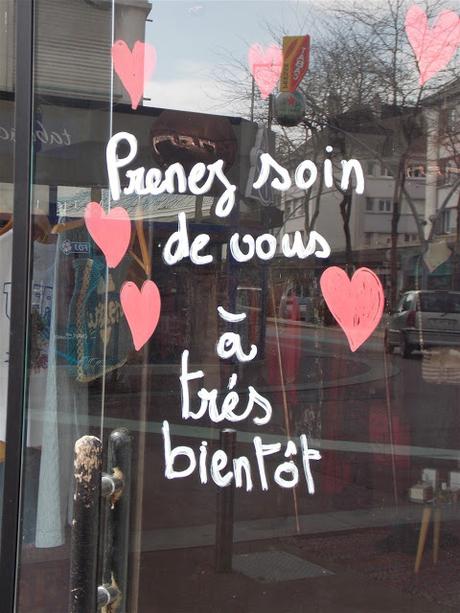 Prenez soin
de vous
à
trés
bientôt